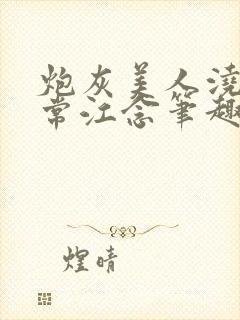 炮灰美人浇
常江念笔趣
煌晴